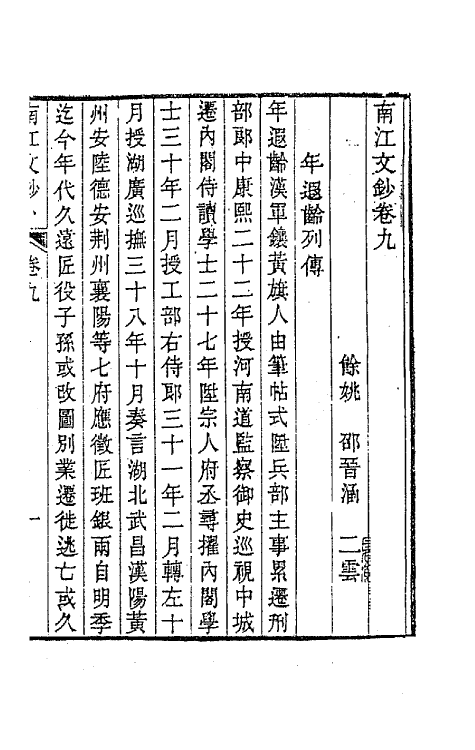 南江文鈔卷九
餘姚　邵晉涵　二雲
年遐齡列傳
年遐齡漢軍鑲黃旗人由筆帖式陞兵部主事累遷刑
部郎中康熙二十二年授河南道監察御史巡視中城
遷內閣侍讀學士二十七年陞宗人府丞尋擢內閣學
士三十年二月授工部右侍郎三十一年二月轉左十
月授湖廣巡撫三十八年十月奏言湖北武昌漢陽黃
州安陸德安荆州襄陽等七府應徵匠班銀兩自明季
迄今年代久遠匠役子孫或改圖別業遷徙逃亡或久
南江文鈔　卷九　一